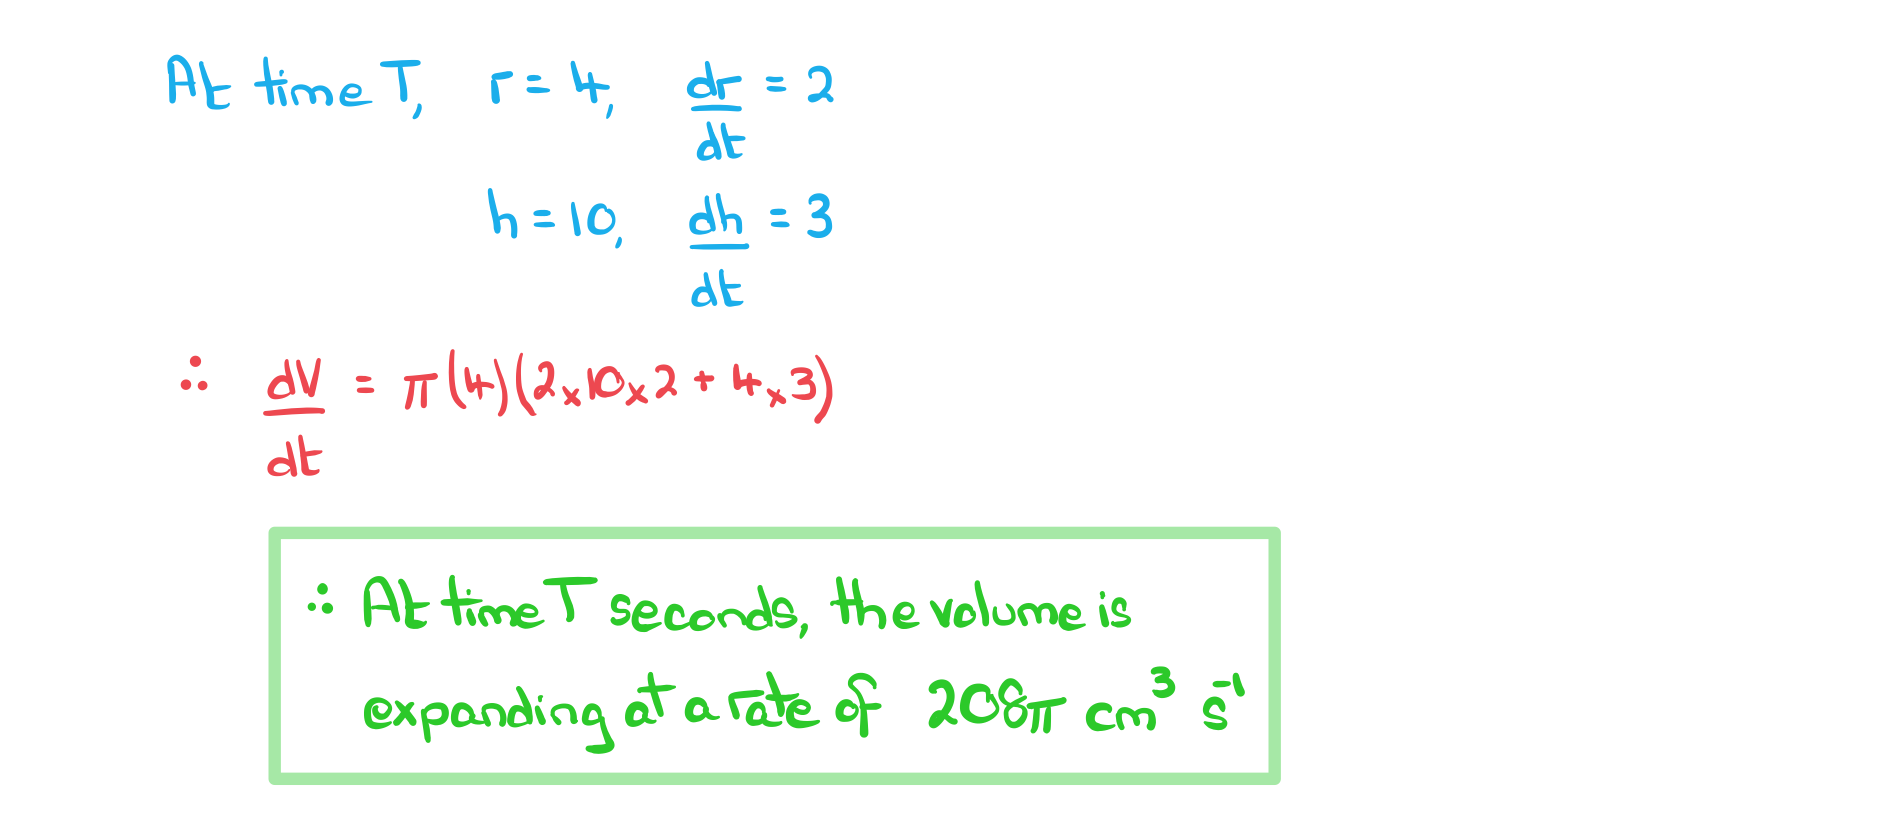 At time T, r = 4, dr/dt = 2
h = 10, dh/dt = 3
∴ dV/dt = π(4)(2×10×2 + 4×3)
∴ At time T seconds, the volume is
expanding at a rate of 208π cm³ s⁻¹